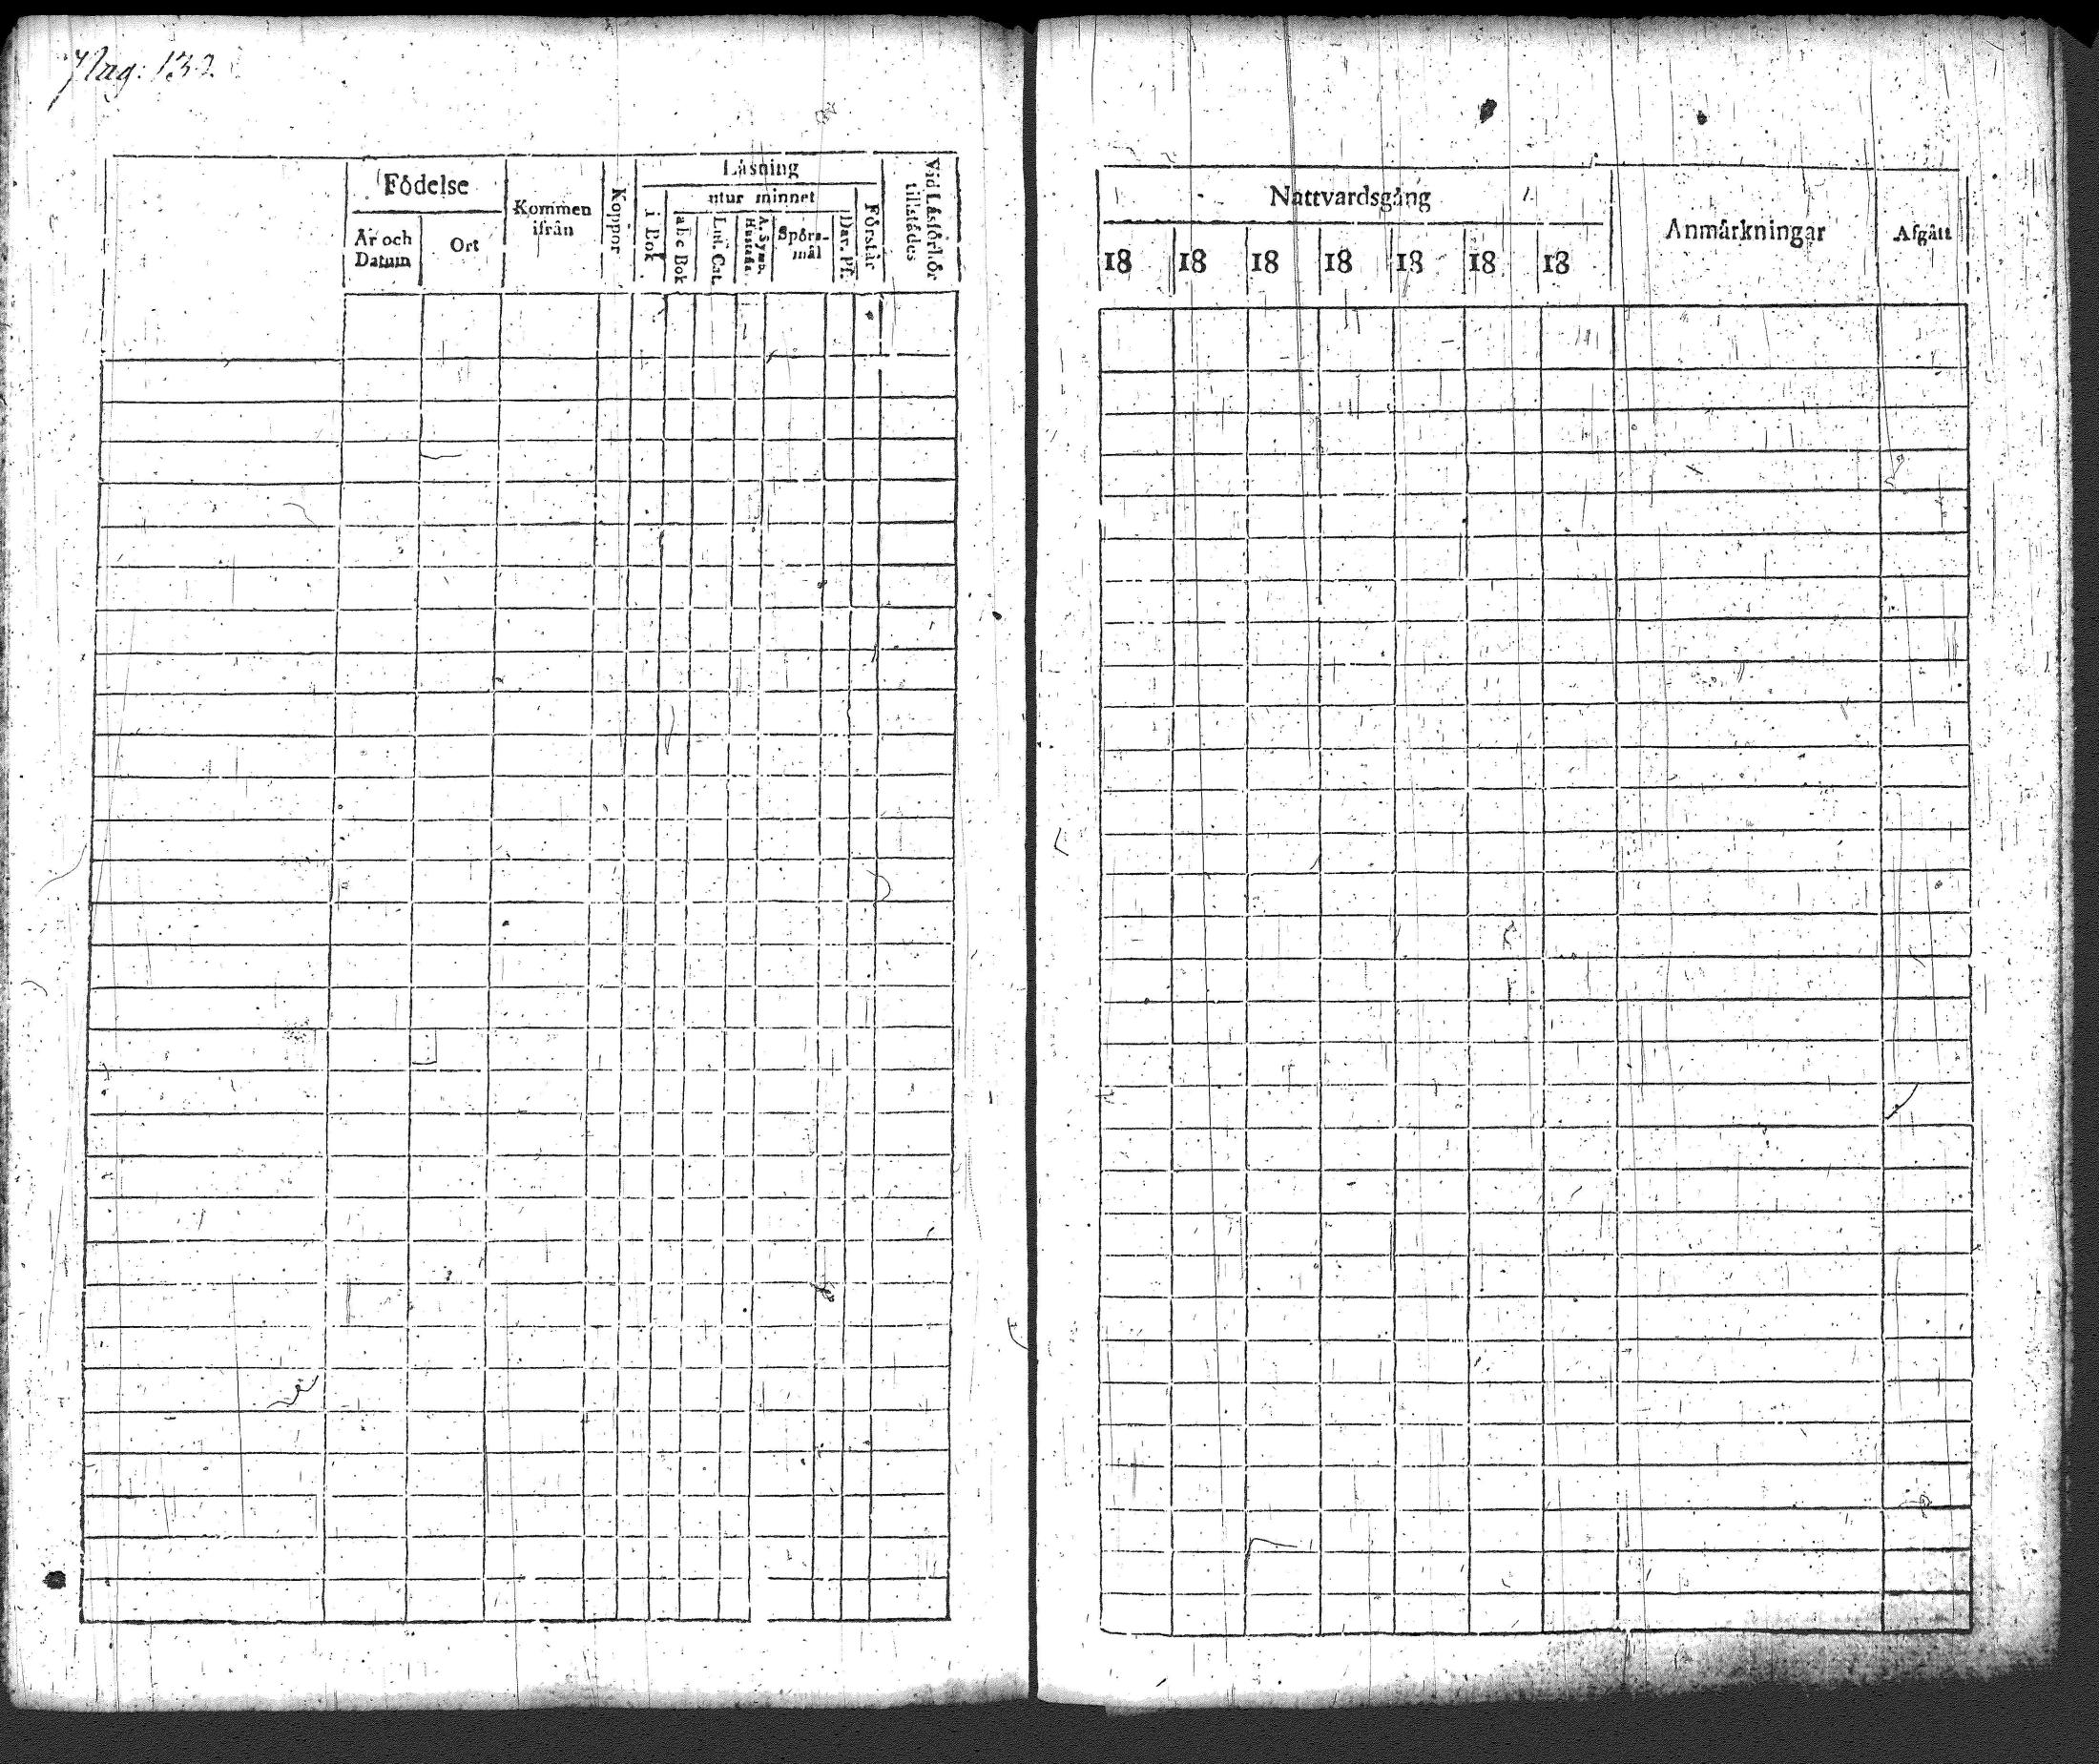 Pag: 132.
Födelse
År och Datum
Ort
Kommen ifrån
Koppor
Läsning
i Bok
utur minnet
abc Bok
Lut. Cat.
A. Symb. Hustafla
Spörsmål
Dav. Ps.
Förstår
Vid Läsförhör tillstädes
Nattvardsgång
18 18 18 18 18 18 18
Anmärkningar
Afgått